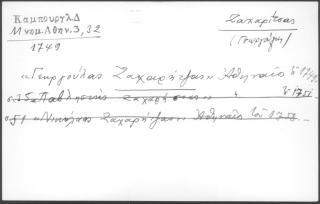 Καμπουργλ. Δ
Μνημ. Αθην. 3, 32
1749
Ζαχαρίτσας
(Γεωργάκης)
«Γεωργούλας Ζαχαρίτζας» Αθηναίο
σ. 35 «Παβλησης Ζαχαρήτσας»
σ. 51 «Νικόλαος Ζαχαρήτζας» Αθηναίο